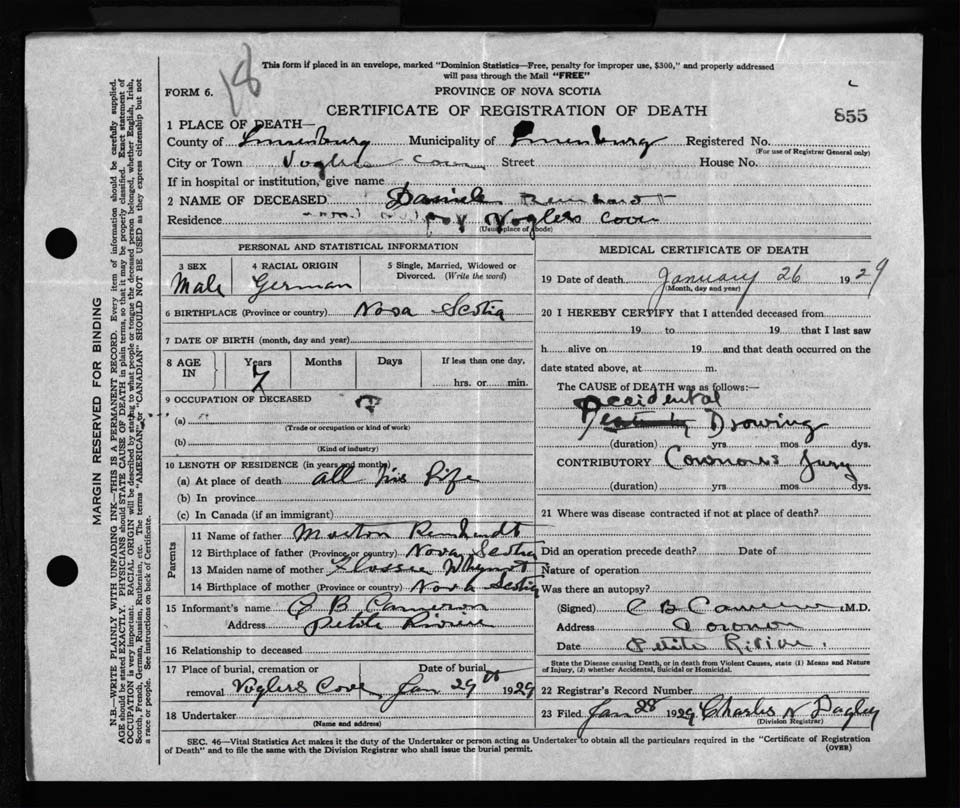 18
This form if placed in an envelope, marked "Dominion Statistics—Free, penalty for improper use, $300," and properly addressed
will pass through the Mail "FREE"
FORM 6.
PROVINCE OF NOVA SCOTIA
CERTIFICATE OF REGISTRATION OF DEATH
855
1 PLACE OF DEATH—
County of Lunenburg Municipality of Lunenburg Registered No.
(For use of Registrar General only)
City or Town Voglers Cove Street House No.
If in hospital or institution, give name
2 NAME OF DECEASED Daniel Reinhardt
Residence Voglers Cove
(Usual place of abode)
PERSONAL AND STATISTICAL INFORMATION
3 SEX 4 RACIAL ORIGIN 5 Single, Married, Widowed or Divorced. (Write the word)
Male German
6 BIRTHPLACE (Province or country) Nova Scotia
7 DATE OF BIRTH (month, day and year)
8 AGE IN Years Months Days If less than one day,
7 hrs. or min.
9 OCCUPATION OF DECEASED
(a)
(Trade or occupation or kind of work)
(b)
(Kind of industry)
10 LENGTH OF RESIDENCE (in years and months)
(a) At place of death all his life
(b) In province
(c) In Canada (if an immigrant)
Parents
11 Name of father Reinhardt
12 Birthplace of father (Province or country) Nova Scotia
13 Maiden name of mother Flossie Whynot
14 Birthplace of mother (Province or country) Nova Scotia
15 Informant's name C B Cameron
Address Petite Riviere
16 Relationship to deceased
17 Place of burial, cremation or Date of burial
removal Voglers Cove Jan 29th 1929
18 Undertaker
(Name and address)
MEDICAL CERTIFICATE OF DEATH
19 Date of death January 26 1929
(Month, day and year)
20 I HEREBY CERTIFY that I attended deceased from
19 to 19 that I last saw
h alive on 19 and that death occurred on the
date stated above, at m.
The CAUSE of DEATH was as follows:—
Accidental
Drowing
(duration) yrs mos dys.
CONTRIBUTORY Coronors Jury
(duration) yrs mos dys.
21 Where was disease contracted if not at place of death?
Did an operation precede death? Date of
Nature of operation
Was there an autopsy?
(Signed) C B Cameron M.D.
Address Coronor
Date Petite Riviere
State the Disease causing Death, or in death from Violent Causes, state (1) Means and Nature
of Injury, (2) whether Accidental, Suicidal or Homicidal.
22 Registrar's Record Number
23 Filed Jan 28 1929 Charles N Dagley
(Division Registrar)
SEC. 46—Vital Statistics Act makes it the duty of the Undertaker or person acting as Undertaker to obtain all the particulars required in the "Certificate of Registration
of Death" and to file the same with the Division Registrar who shall issue the burial permit.
(OVER)
MARGIN RESERVED FOR BINDING
N.B.—WRITE PLAINLY WITH UNFADING INK—THIS IS A PERMANENT RECORD. Every item of information should be carefully supplied.
AGE should be stated EXACTLY. PHYSICIANS should STATE CAUSE OF DEATH in plain terms, so that it may be properly classified. Exact statement of
OCCUPATION is very important. RACIAL ORIGIN will be described by stating to what people or tongue the deceased person belonged, whether English, Irish,
Scotch, French, German, Russian, Ruthenian, etc. The terms "AMERICAN" or "CANADIAN" SHOULD NOT BE USED as they express citizenship but not
a race or people. See instructions on back of Certificate.